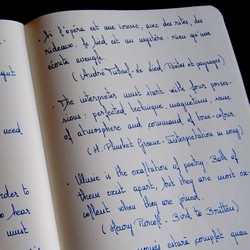 Si l'opéra est une messe, avec des rites, des
rideaux, le lied est un mystère - rien qu'une
écoute aveugle.
(André Tubeuf - Le Lied - Poètes et paysages)
The interpreter must start with four posses-
sions: perfected technique, magnetism, sense
of atmosphere and command of tone-colour.
(H. Plunket Greene - Interpretation in song)
Music is the exaltation of poetry. Both of
them exist apart, but they are most ex-
cellent when they are joined.
(Henry Purcell - Bird to Britten)
need
order to
hear
must
complet